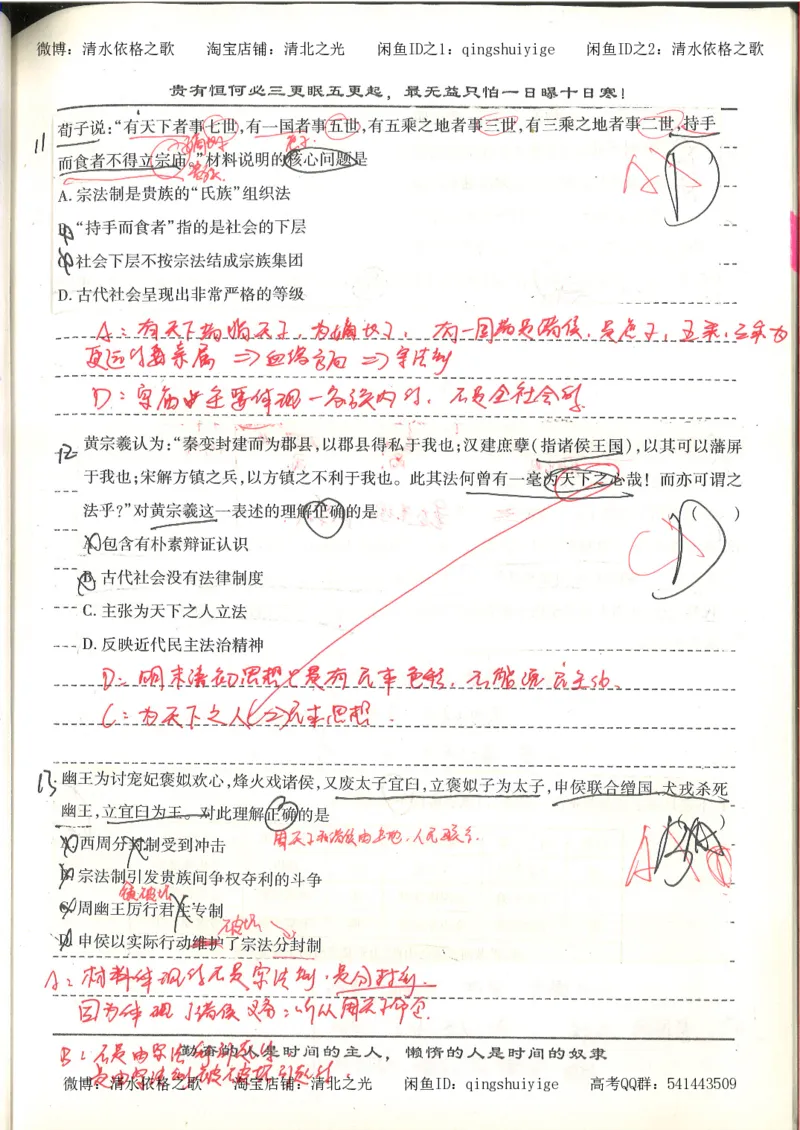 微博：清水依格之歌 淘宝店铺：清北之光 闲鱼ID之1：qingshuiyige 闲鱼ID之2：清水依格之歌
贵有恒何必三更眠五更起，最无益只怕一日曝十日寒！
11 荀子说：“有天下者事七世，有一国者事五世，有五乘之地者事三世，有三乘之地者事二世，持手
而食者不得立宗庙。”材料说明的核心问题是 ( )
A. 宗法制是贵族的“氏族”组织法
B. “持手而食者”指的是社会的下层
C. 社会下层不按宗法结成宗族集团
D. 古代社会呈现出非常严格的等级
A：有天下者指天子，为嫡长子，有一国者是诸侯，是庶子，五乘，三乘为
更远的要亲属 ⇒ 血缘 ⇒ 宗法制
D：宗庙主要体现一名族内的，不是全社会的
12 黄宗羲认为：“秦变封建而为郡县，以郡县得私于我也；汉建庶孽(指诸侯王国)，以其可以藩屏
于我也；宋解方镇之兵，以方镇之不利于我也。此其法何曾有一毫为天下之心哉！而亦可谓之
法乎？”对黄宗羲这一表述的理解正确的是 ( )
A. 包含有朴素辩证认识
B. 古代社会没有法律制度
C. 主张为天下之人立法
D. 反映近代民主法治精神
D：明末清初思想只是有民本色彩，不能说民主法治
C：为天下之人 ⇒ 民本思想．
13. 幽王为讨宠妃褒姒欢心，烽火戏诸侯，又废太子宜臼，立褒姒子为太子，申侯联合缯国、犬戎杀死
幽王，立宜臼为王。对此理解正确的是 ( )
A. 西周分封制受到冲击 周天子和诸侯由土地、人民联系．
B. 宗法制引发贵族间争权夺利的斗争
被破坏
C. 周幽王厉行君主专制
破坏
D. 申侯以实际行动维护了宗法分封制
A：材料体现的不是宗法制，是分封制．
因为体现了诸侯义务：听从周天子命令．
B：不是由宗法
勤奋的人是时间的主人，懒惰的人是时间的奴隶
是由宗法制被破坏引起的．
微博：清水依格之歌 淘宝店铺：清北之光 闲鱼ID：qingshuiyige 高考QQ群：541443509